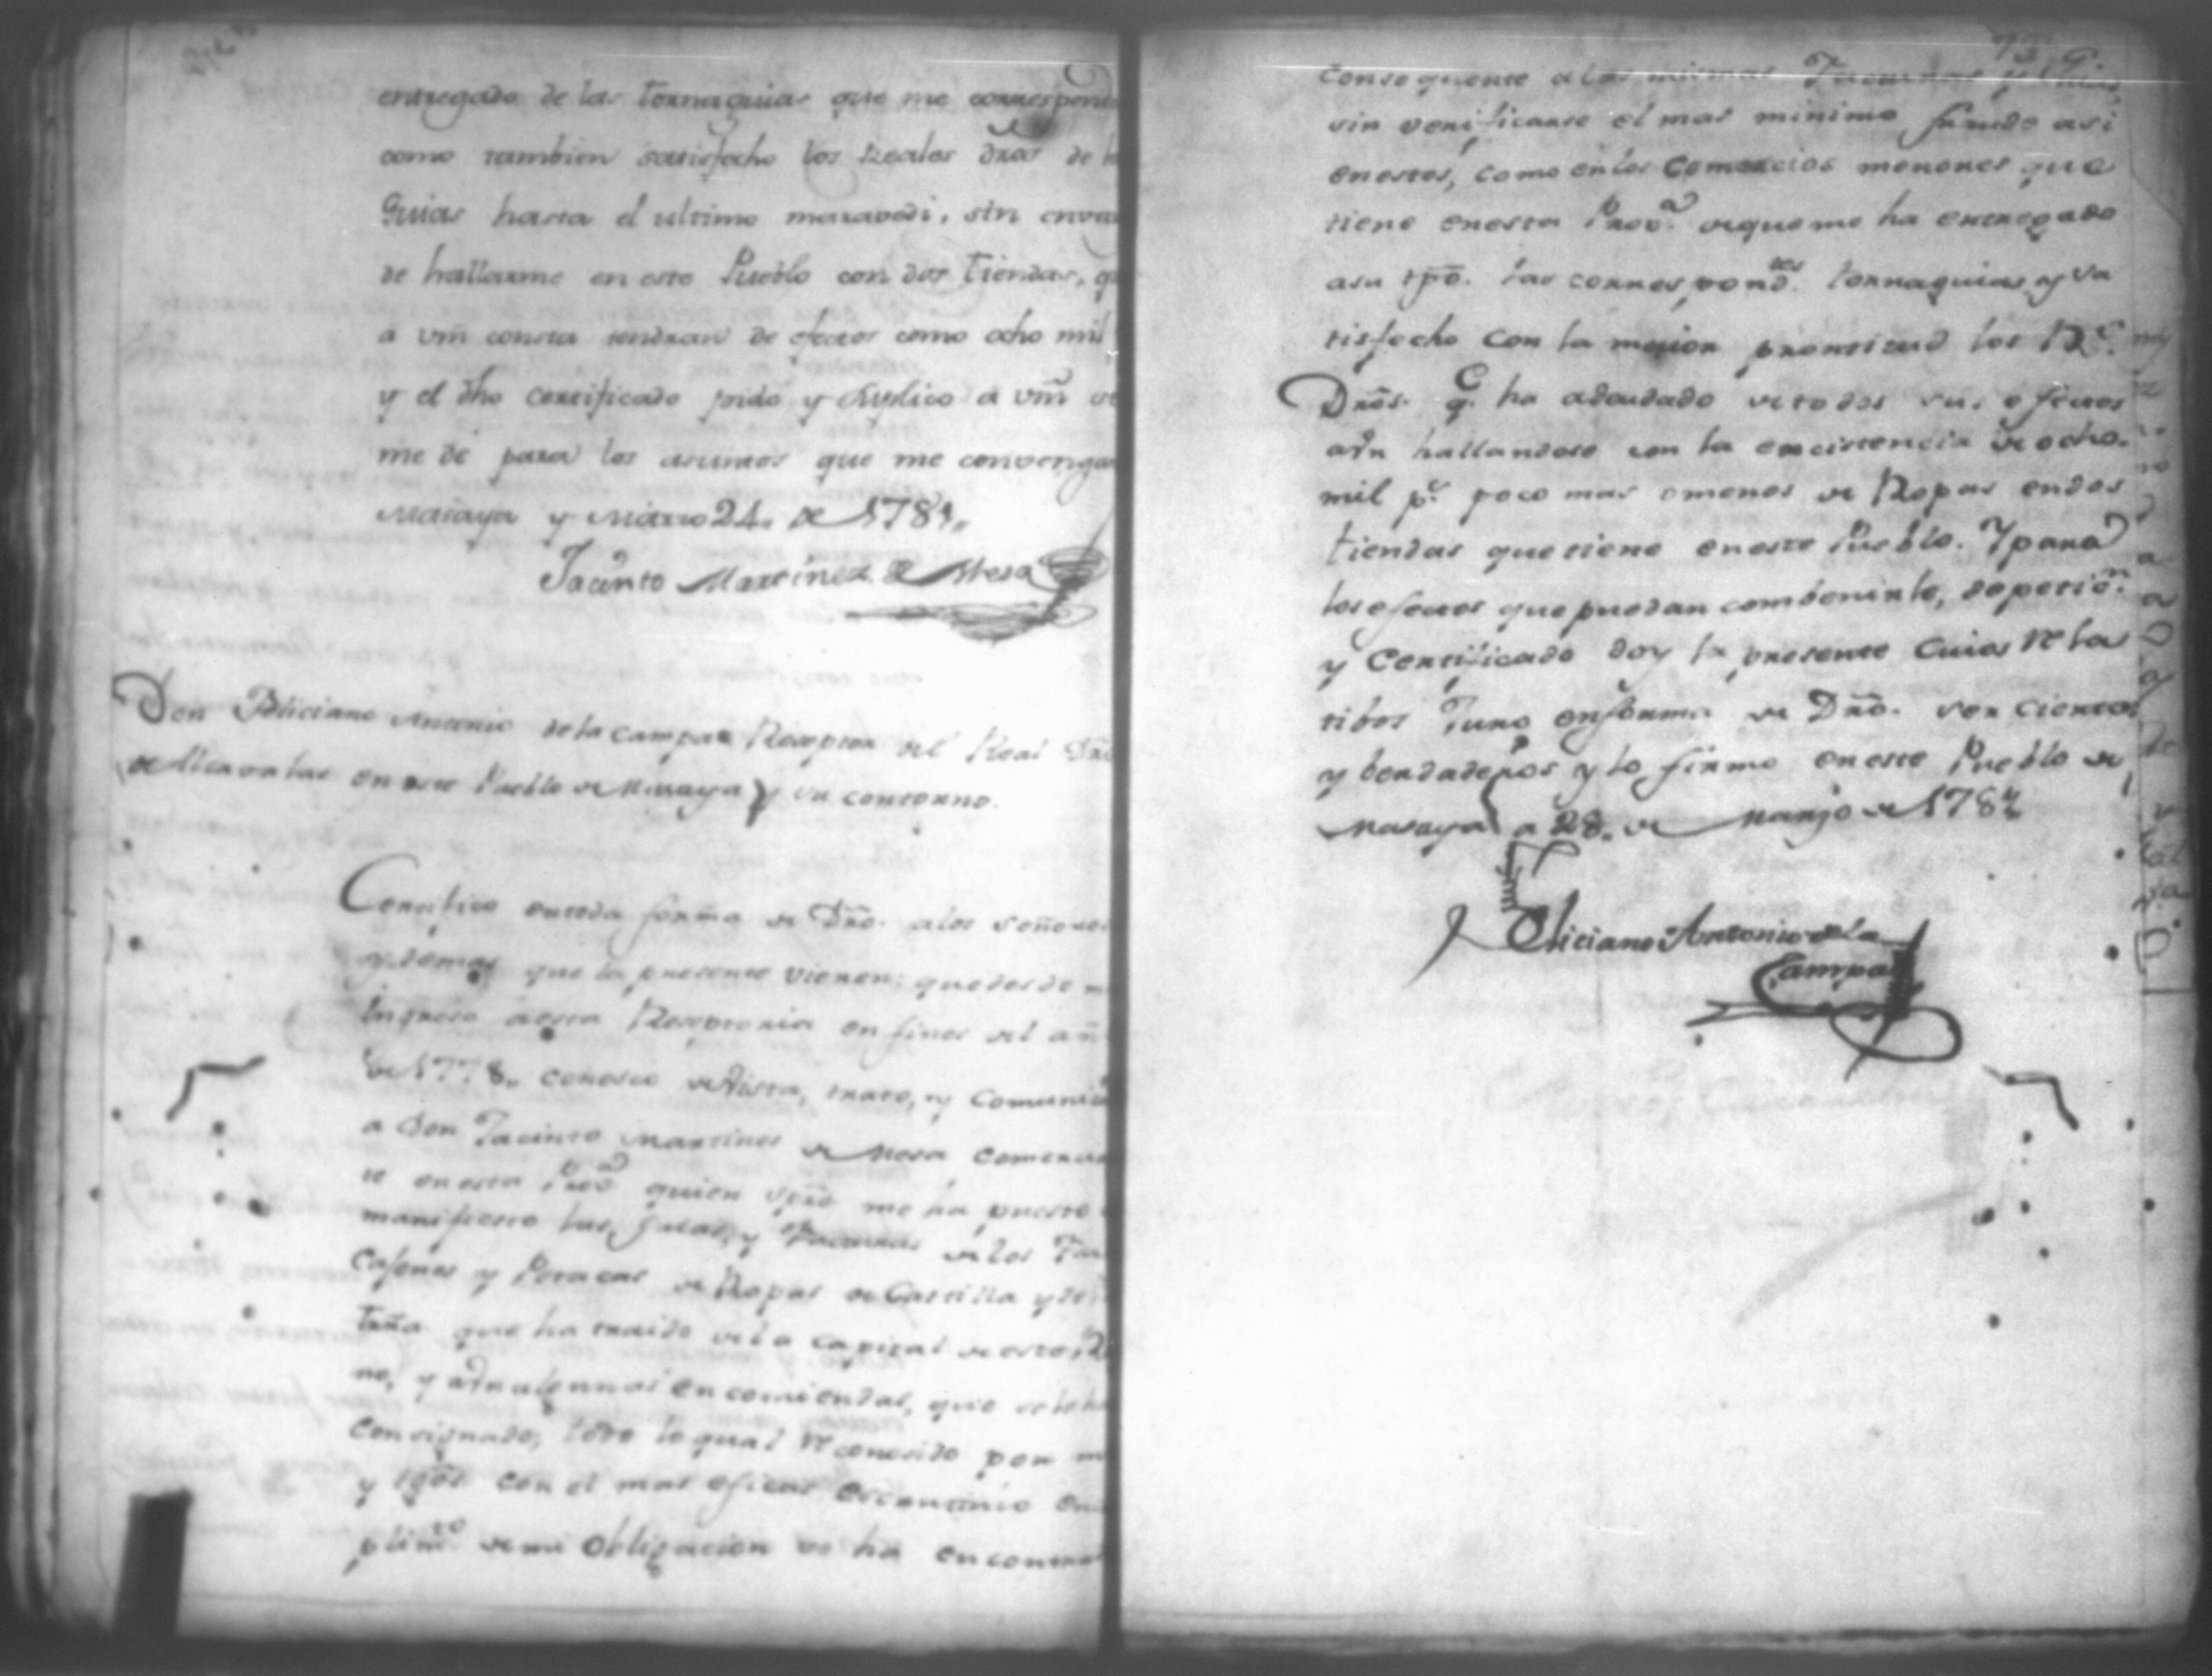 entregado de las tornaguias que me correspond
como tambien satisfecho los Reales dr̃os de
Guias hasta el ultimo maravedi, sin
de hallarme en este Pueblo con dos tiendas, q
a vm̃ consta tendran de efectos como ocho mil
y el dh̃o certificado pido y suplico a vm̃
me dé para los asumtos que me convengan
Masaya y Marzo 24. de 1784.
Jacinto Martinez de Mesa
Don Feliciano Antonio de la Campa Receptor del Real Dr̃o
de Alcavalas en este Pueblo de Masaya y su contorno.
Certifico en toda forma de Dr̃o. a los señores
y demas que la presente vieren: que desde m
ingreso a esta Receptoria en fines del añ
de 1778. conosco de vista, trato, y Comunica
a Don Jacinto Martines de Mesa Comercian
te en esta Prov.a quien me ha puesto
manifiesto las Guias, y Facturas de los
Cajones y Petacas de Ropas de Castilla y de
que ha traido de la Capital de este
no, y aun algunas encomiendas, que se le ha
Consignado, todo lo qual reconosido por m
y con el mas eficas escrutinio en
plim.to de mi obligacion se ha encontrad
consequente a las mismas Facturas y Guias
sin verificarse el mas minimo fraude asi
en estos, como en los Comercios menores que
tiene en esta Prov.a de que me ha entregado
a su tp̃o. las correspond.tes tornaguias y sa
tisfecho con la mayor prontitud los R.s
Dr̃os. q.e ha adeudado de todos sus efectos
aun hallandose con la excistencia de ocho
mil p.s poco mas o menos de Ropas en dos
tiendas que tiene en este Pueblo. Y para
los efectos que puedan combenirle, de petic.n
y Certificado doy la presente Cuios Rela
tibos Juro en forma de Dr̃o. ser ciertos
y berdaderos y lo firmo en este Pueblo de
Masaya a 28. de Marzo de 1784
Feliciano Antonio de la
Campa